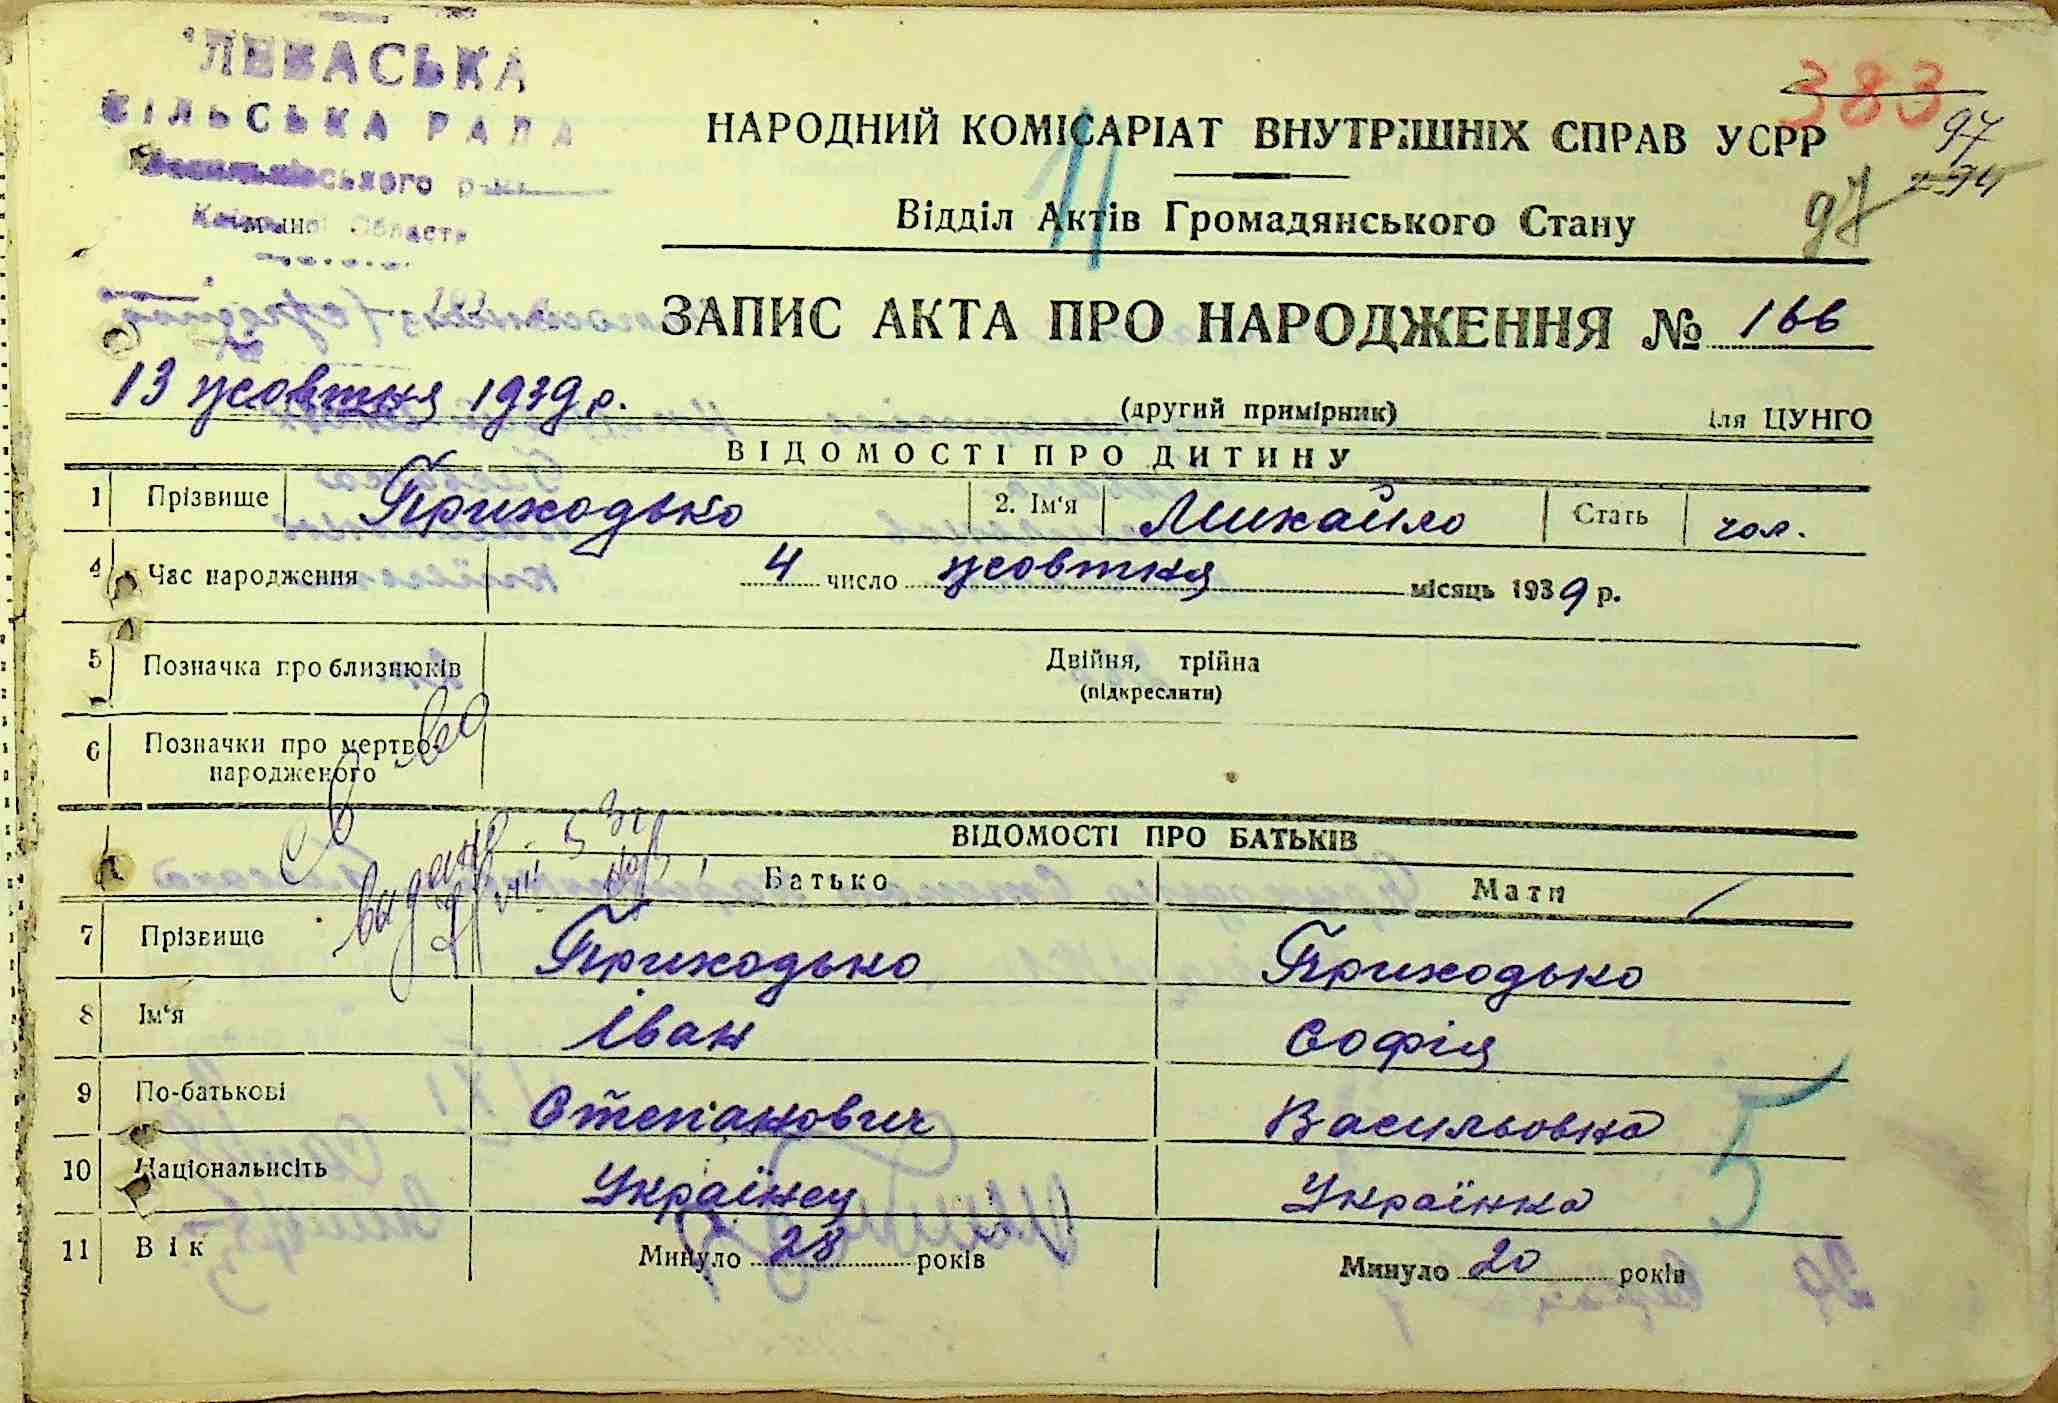 СІЛЬСЬКА РАДА
383
97
НАРОДНИЙ КОМІСАРІАТ ВНУТРІШНІХ СПРАВ УСРР
11
Відділ Актів Громадянського Стану
ЗАПИС АКТА ПРО НАРОДЖЕННЯ № 166
13 жовтня 1939 р. (другий примірник) для ЦУНГО
ВІДОМОСТІ ПРО ДИТИНУ
1 Прізвище Приходько 2. Ім'я Михайло Стать чол.
4 Час народження 4 число жовтня місяць 1939 р.
5 Позначка про близнюків Двійня, трійна
(підкреслити)
6 Позначки про мертво-
народженого
ВІДОМОСТІ ПРО БАТЬКІВ
Батько Мати
7 Прізвище Приходько Приходько
8 Ім'я Іван Софія
9 По-батькові Степанович Васильовна
10 Національність Українец Українка
5
11 Вік Минуло 28 років Минуло 20 років